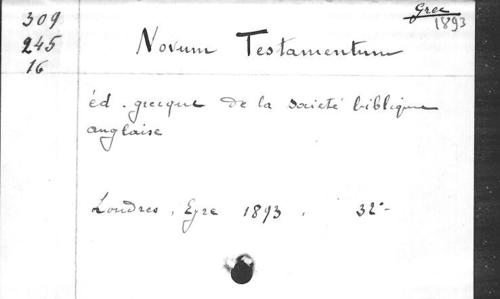 309
245
16
Grec
1893
Novum Testamentum
éd. grecque de la société biblique
anglaise
Londres, Eyre 1893. 32°-